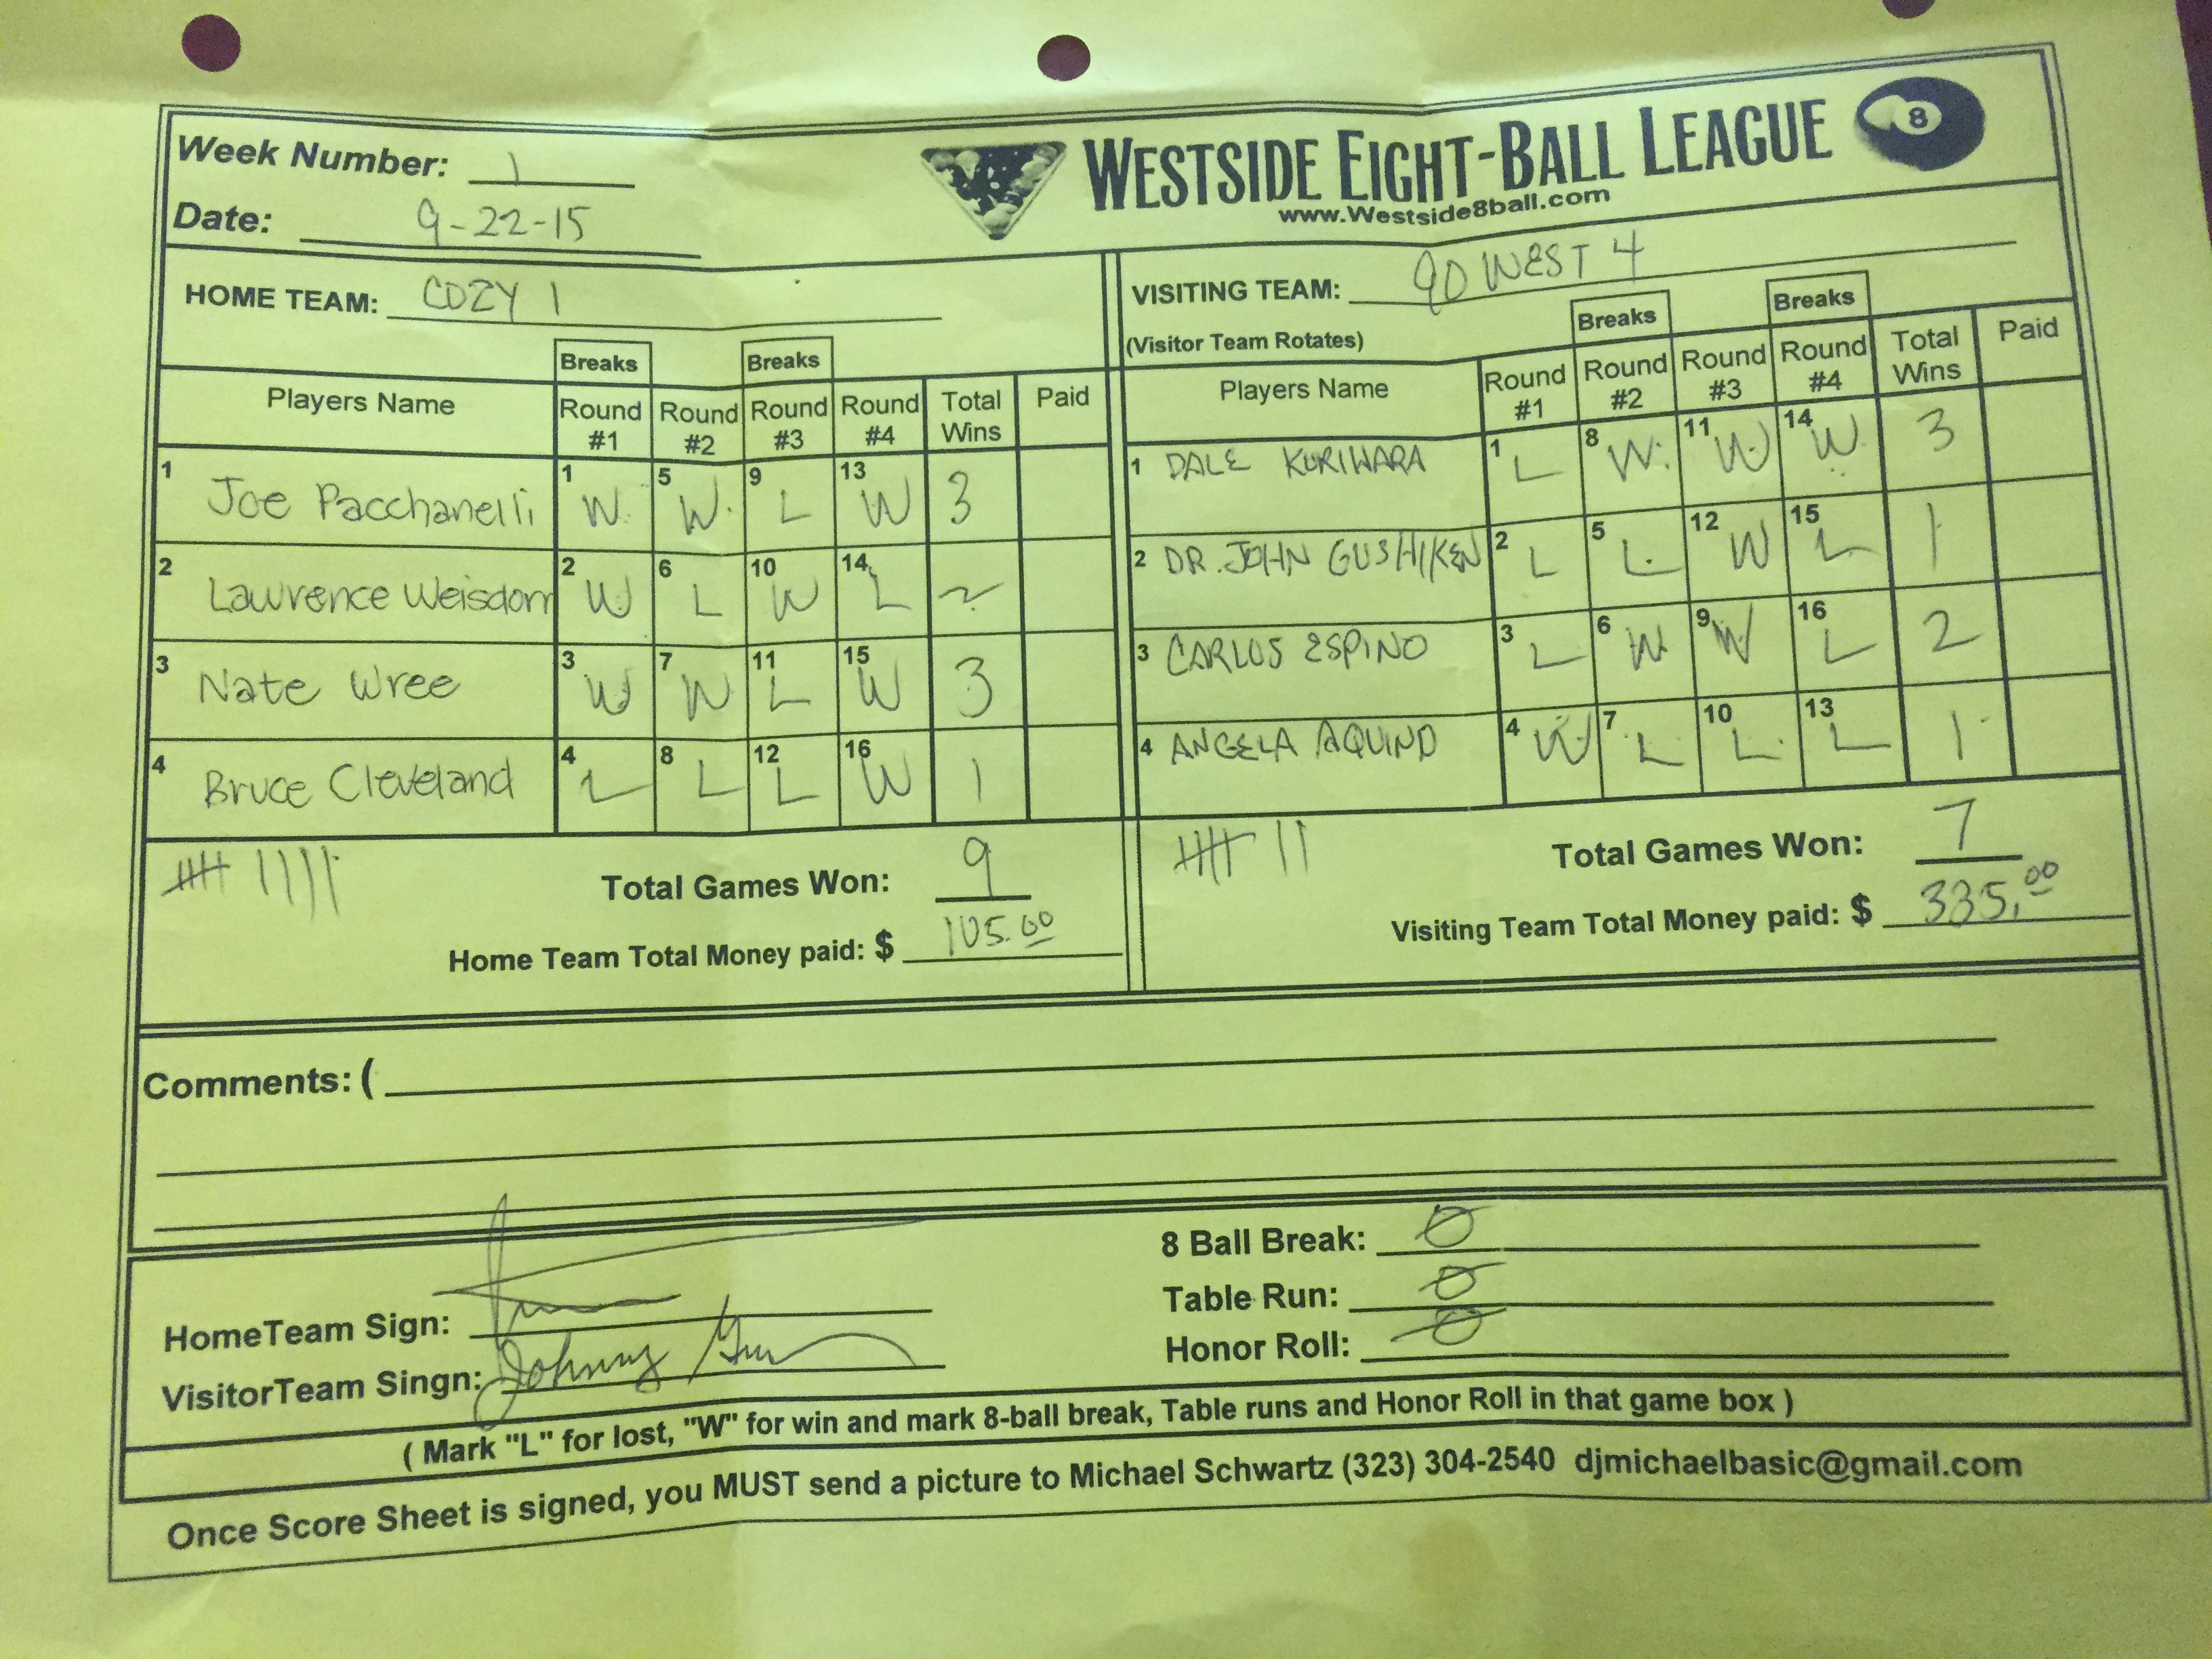 Week Number: 1
Date: 9-22-15
WESTSIDE EIGHT-BALL LEAGUE 8
www.Westside8ball.com
HOME TEAM: COZY 1
Breaks Breaks
Players Name Round #1 Round #2 Round #3 Round #4 Total Wins Paid
1 Joe Pacchanelli 1 W 5 W 9 L 13 W 3
2 Lawrence Weisdorn 2 W 6 L 10 W 14 L 2
3 Nate Wree 3 W 7 W 11 L 15 W 3
4 Bruce Cleveland 4 L 8 L 12 L 16 W 1
Total Games Won: 9
Home Team Total Money paid: $ 105.00
VISITING TEAM: 90 WEST 4
(Visitor Team Rotates) Breaks Breaks
Players Name Round #1 Round #2 Round #3 Round #4 Total Wins Paid
1 DALE KURIHARA 1 L 8 W 11 W 14 W 3
2 DR. JOHN GUSHIKEN 2 L 5 L 12 W 15 L 1
3 CARLOS ESPINO 3 L 6 W 9 W 16 L 2
4 ANGELA AQUINO 4 W 7 L 10 L 13 L 1
Total Games Won: 7
Visiting Team Total Money paid: $ 335.00
Comments: (
HomeTeam Sign:
VisitorTeam Singn: Johnny
8 Ball Break: 0
Table Run: 0
Honor Roll: 0
( Mark "L" for lost, "W" for win and mark 8-ball break, Table runs and Honor Roll in that game box )
Once Score Sheet is signed, you MUST send a picture to Michael Schwartz (323) 304-2540 djmichaelbasic@gmail.com